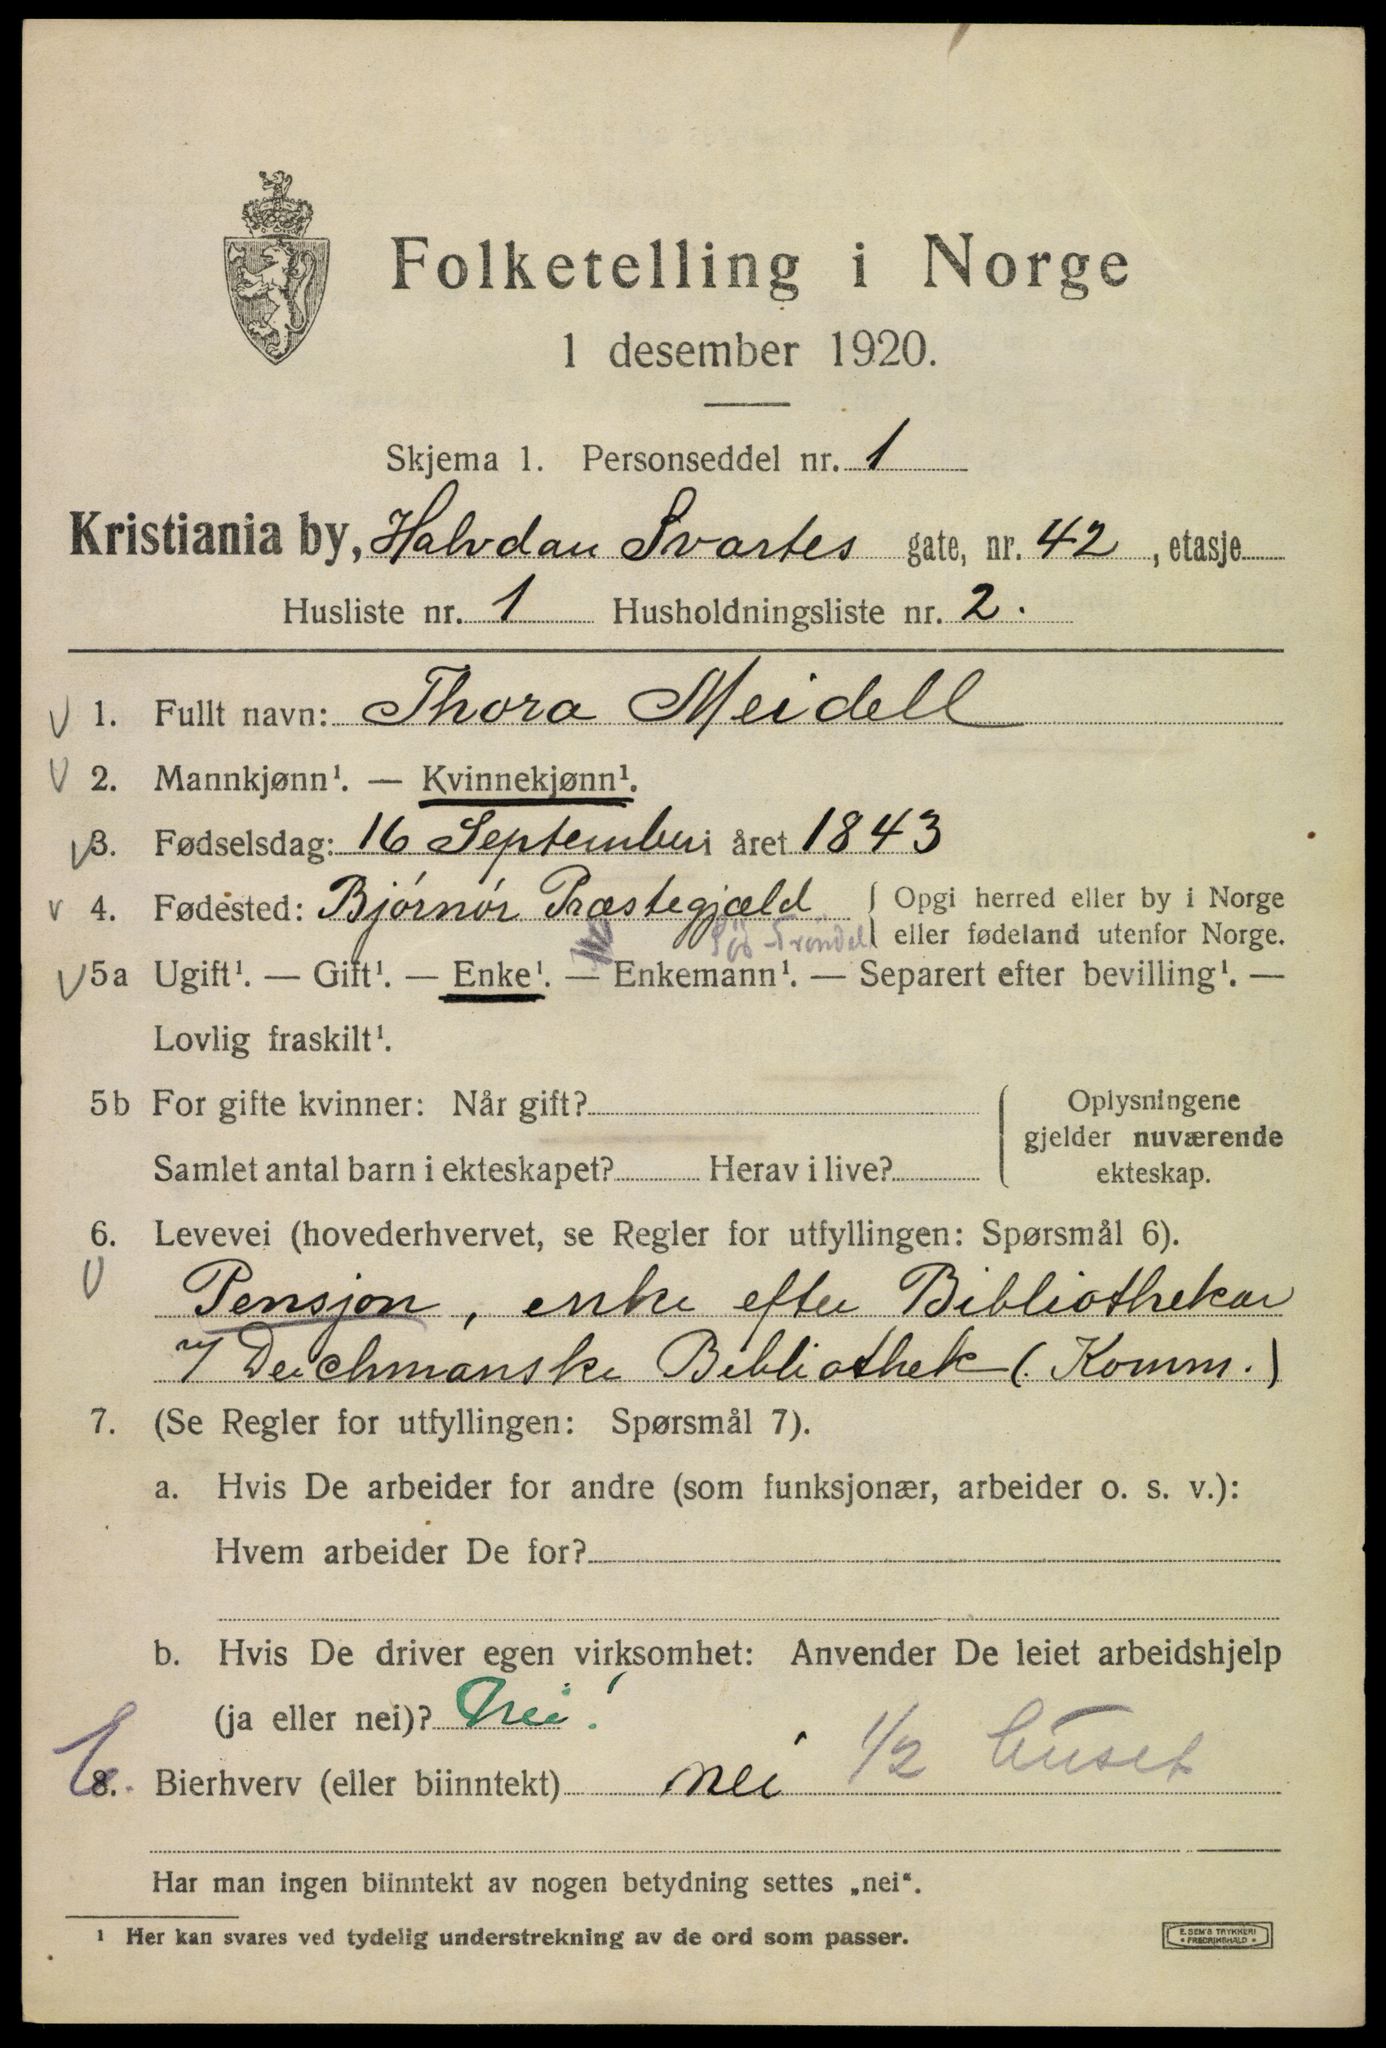 Folketelling i Norge
1 desember 1920.
Skjema 1. Personseddel nr. 1
Kristiania by, Halvdan Svartes gate, nr. 42, etasje
Husliste nr. 1 Husholdningsliste nr. 2.
1. Fullt navn: Thora Meidell
2. Mannkjønn¹. — Kvinnekjønn¹.
3. Fødselsdag: 16 September i året 1843
4. Fødested: Bjørnør Præstegjæld { Opgi herred eller by i Norge
Sød-Trøndel eller fødeland utenfor Norge.
5a Ugift¹. — Gift¹. — Enke¹. — Enkemann¹. — Separert efter bevilling¹. —
Lovlig fraskilt¹.
5b For gifte kvinner: Når gift? { Oplysningene
gjelder nuværende
Samlet antal barn i ekteskapet? Herav i live? ekteskap.
6. Levevei (hovederhvervet, se Regler for utfyllingen: Spørsmål 6).
Pensjon, enke efter Bibliothekar
v/ Deichmanske Bibliothek (Komm.)
7. (Se Regler for utfyllingen: Spørsmål 7).
a. Hvis De arbeider for andre (som funksjonær, arbeider o. s. v.):
Hvem arbeider De for?
b. Hvis De driver egen virksomhet: Anvender De leiet arbeidshjelp
(ja eller nei)? Nei!
8. Bierhverv (eller biinntekt) nei 1/2 huset
Har man ingen biinntekt av nogen betydning settes „nei“.
¹ Her kan svares ved tydelig understrekning av de ord som passer.
E. SEM'S TRYKKERI
• FREDRIKSHALD •